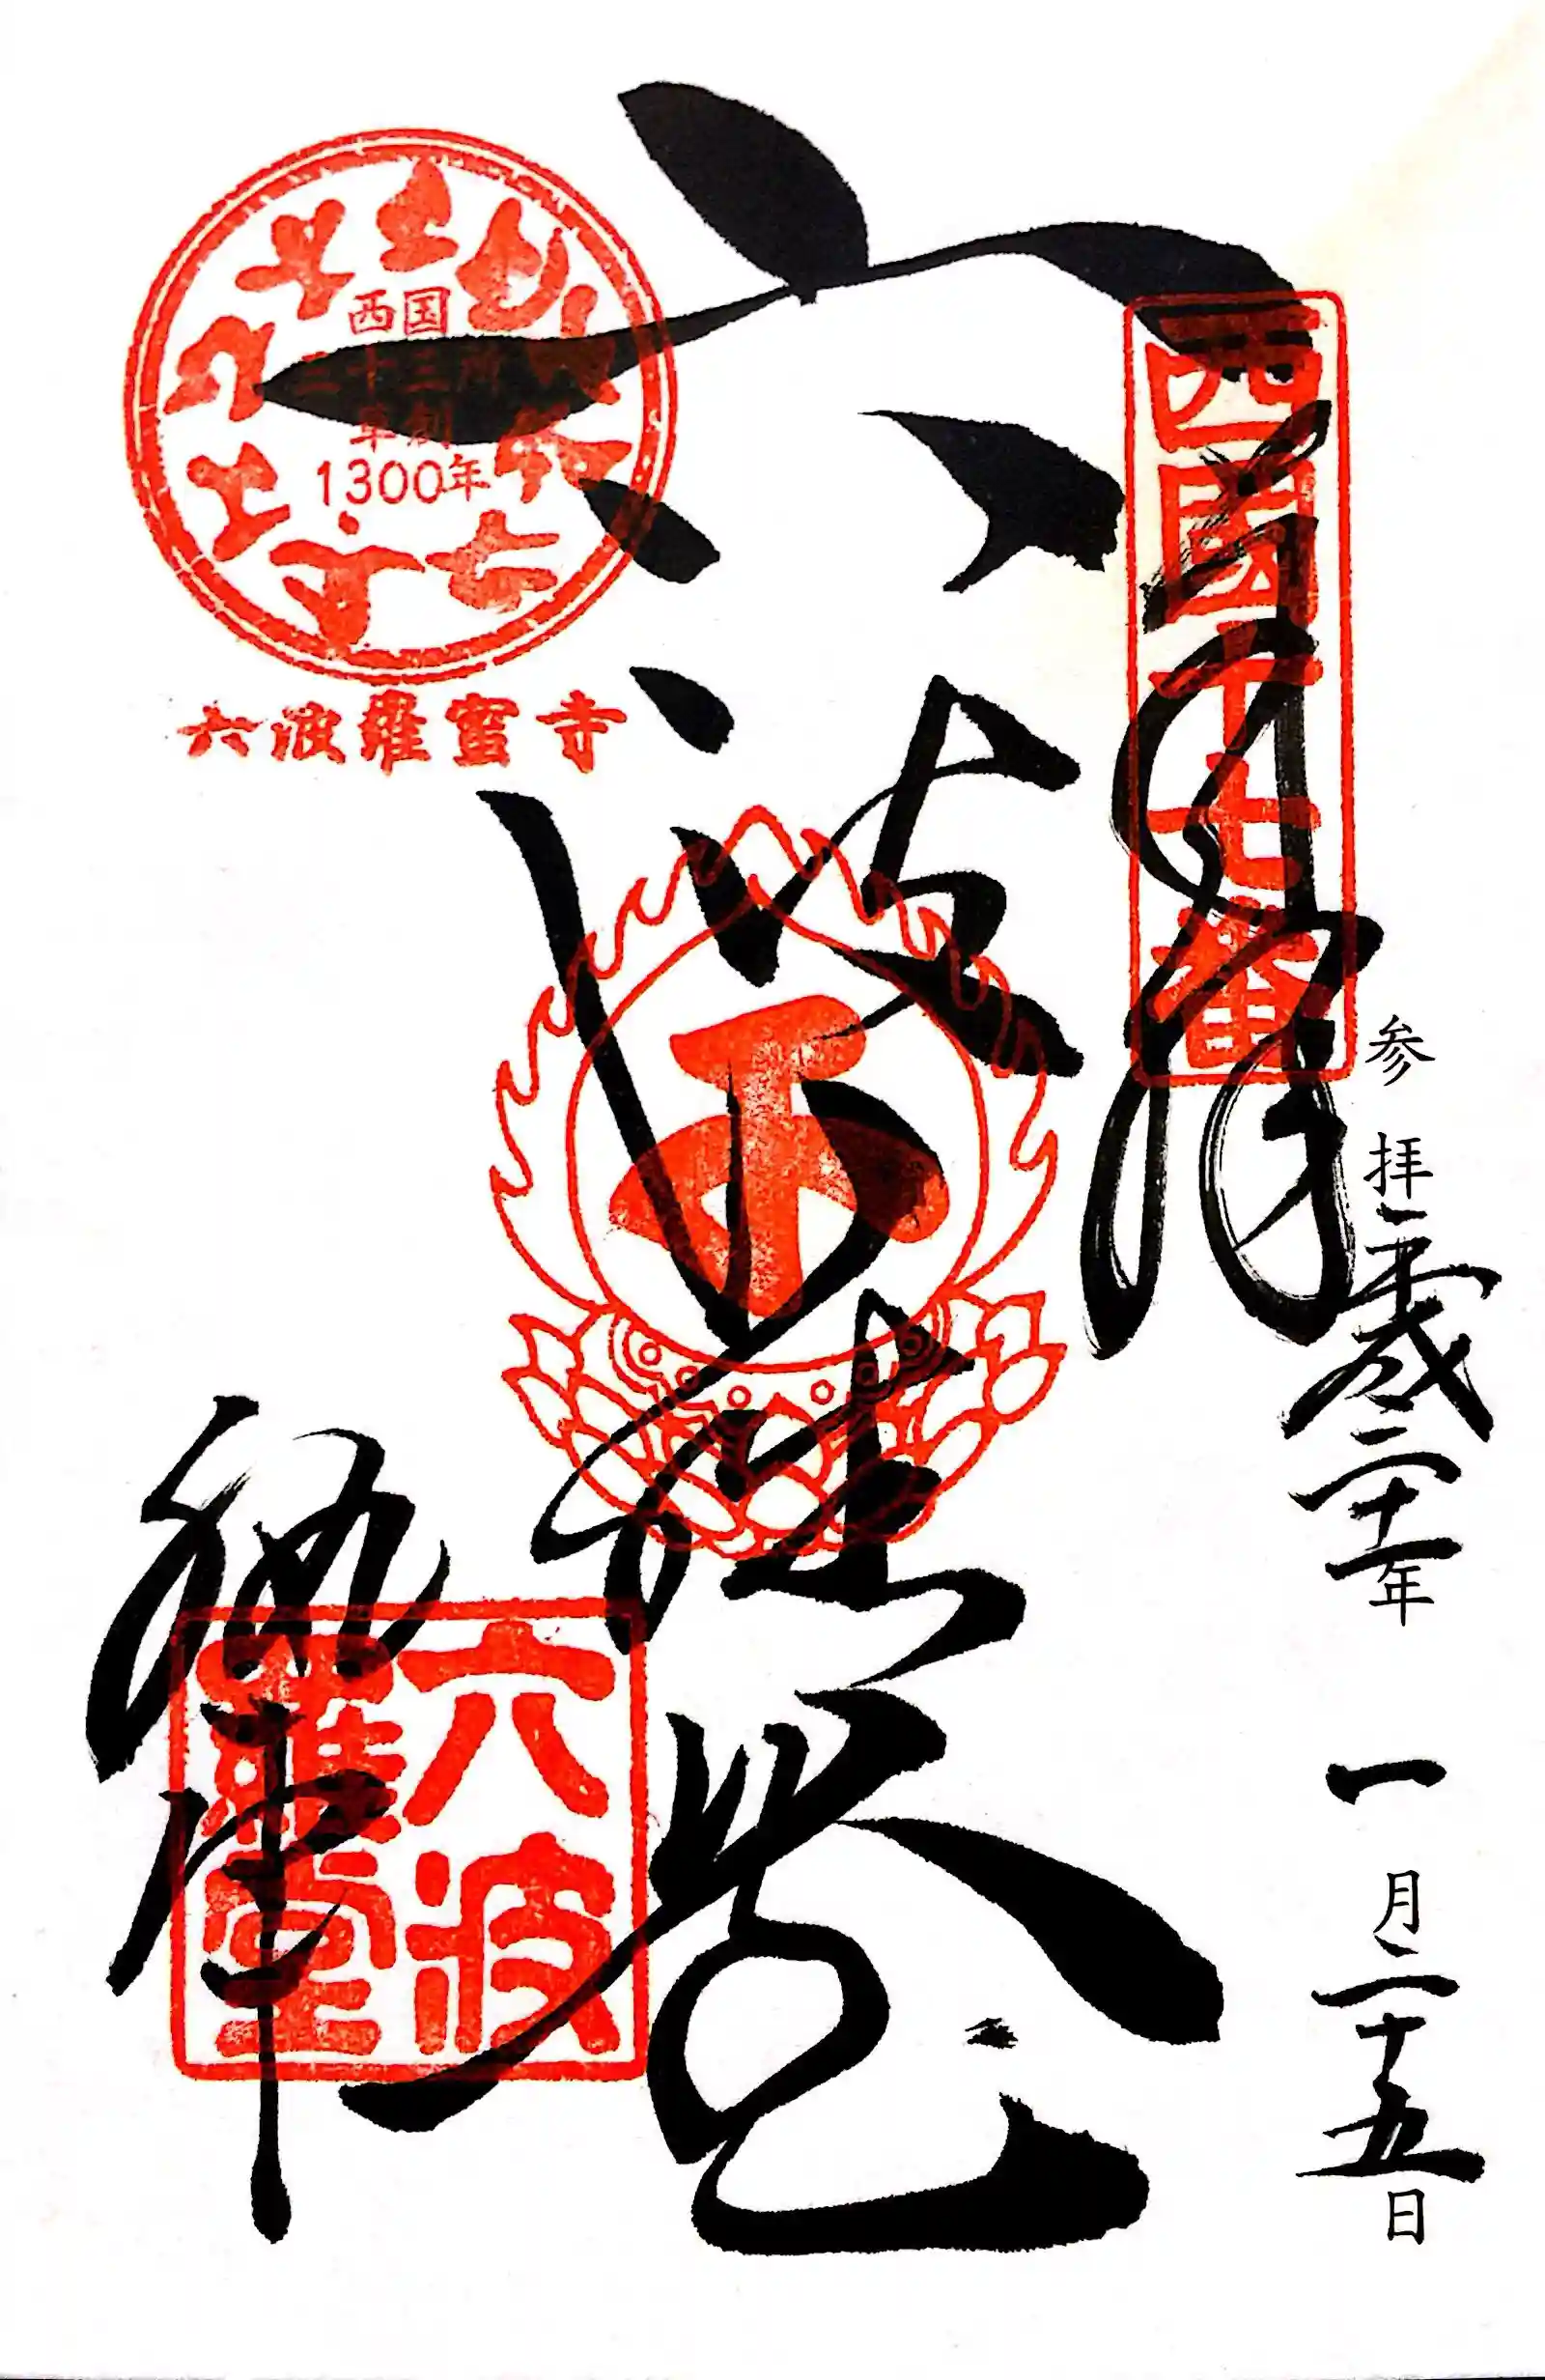 参拝平成三十一年 一月二十五日
西國十七番
奉拝
六波羅堂
西国
三十三所
草創
1300年
六波羅蜜寺
六波
羅堂